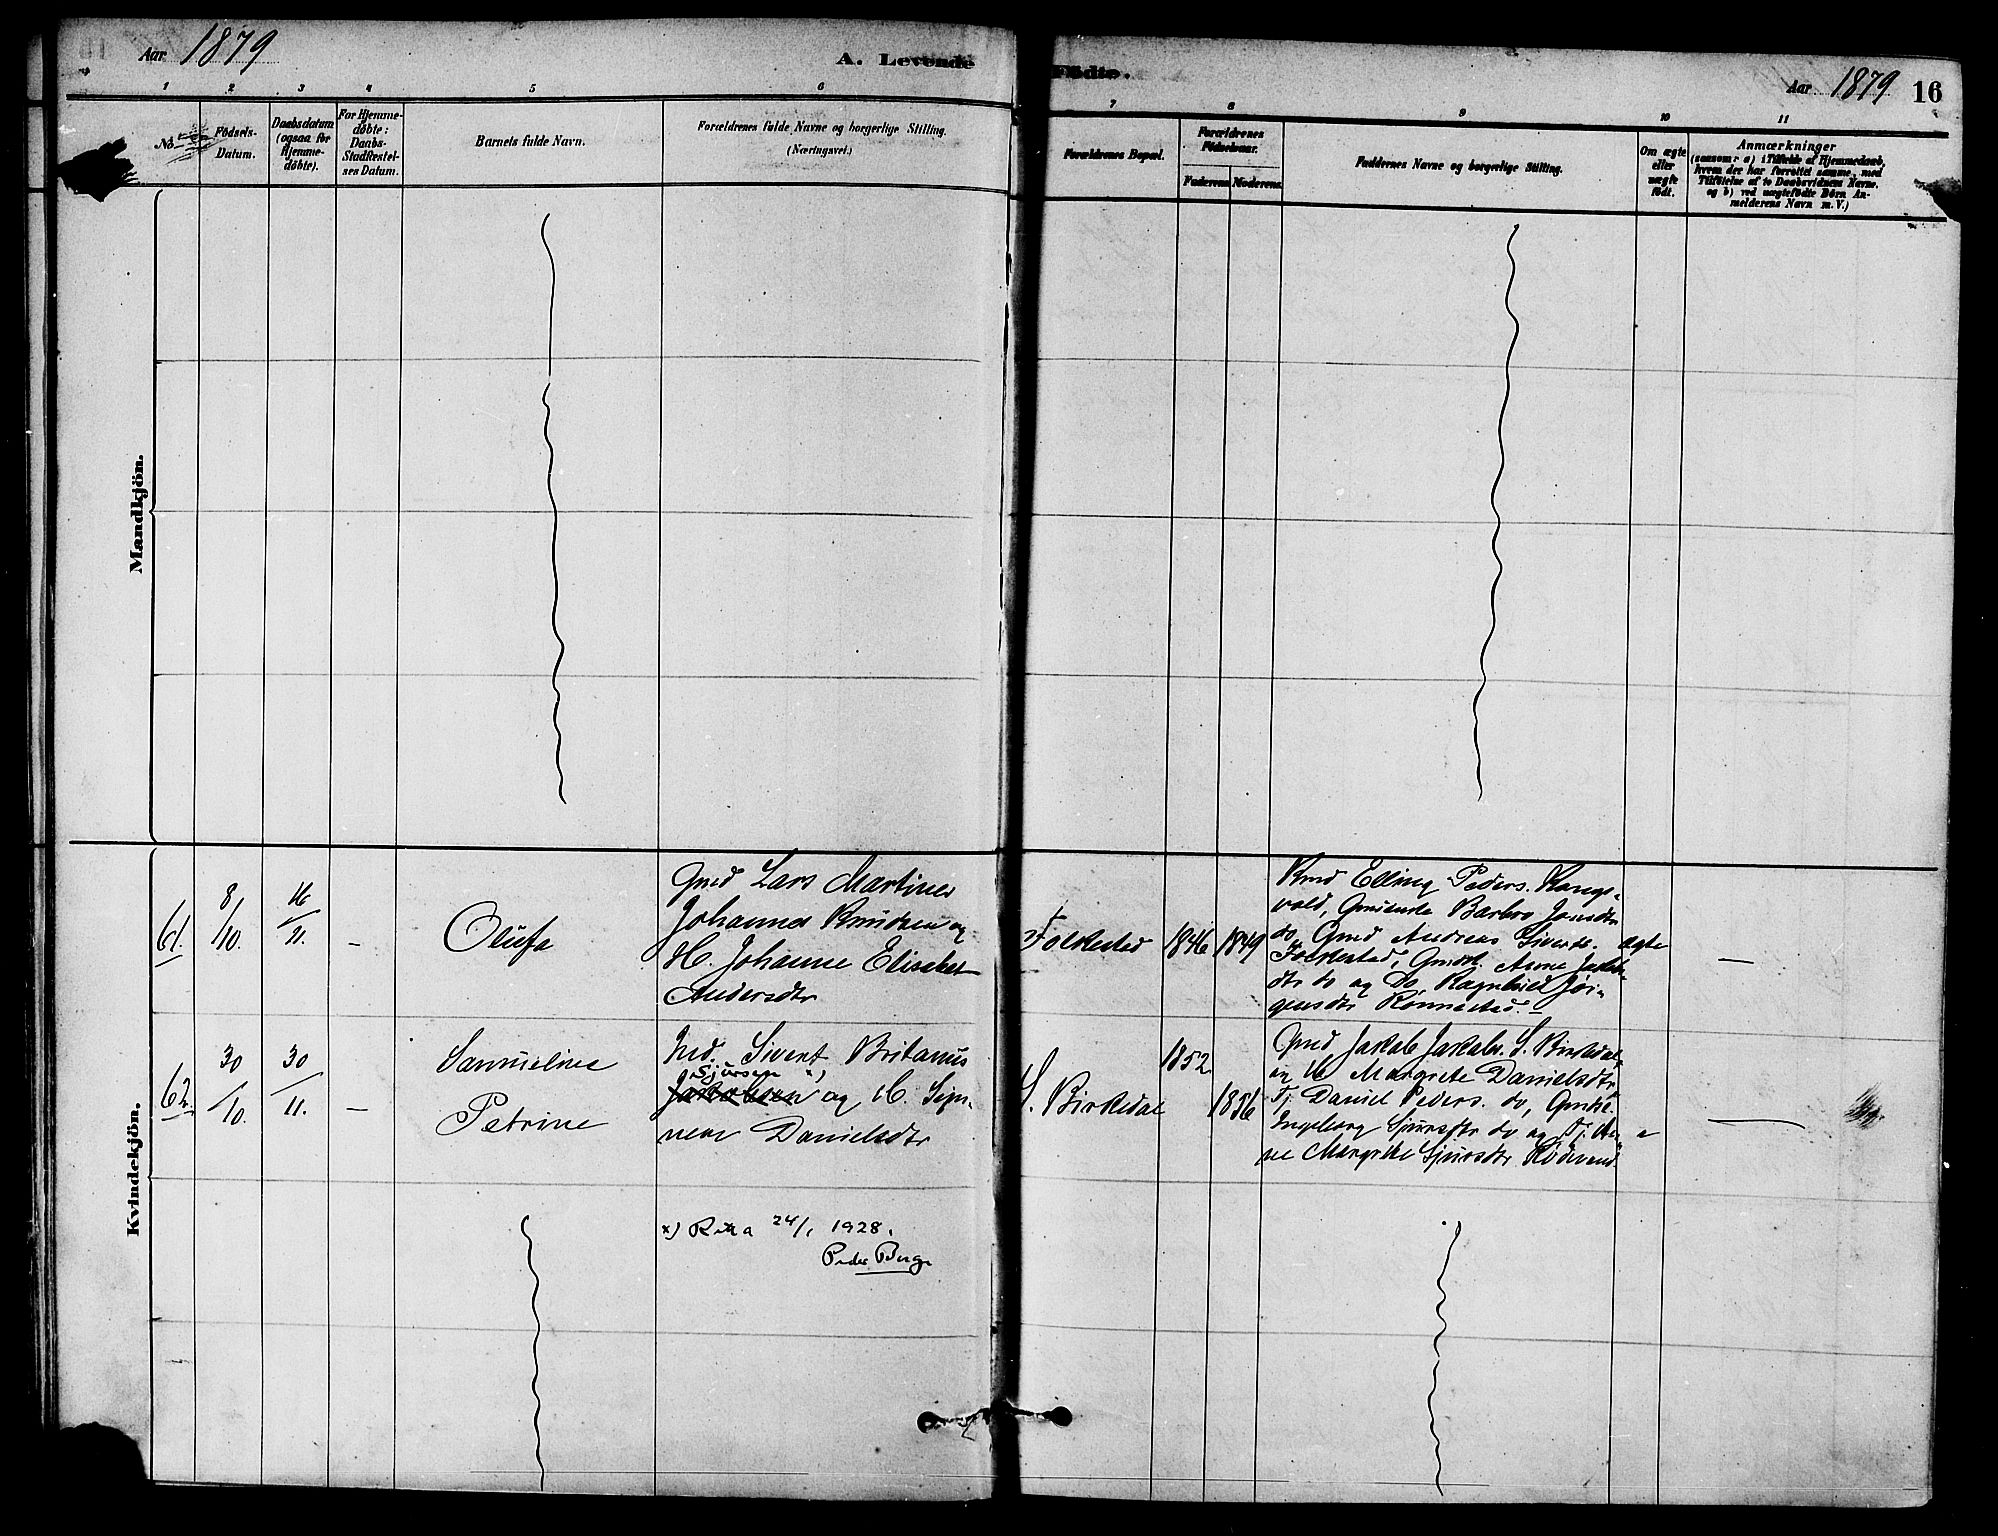 Aar 1879
A. Levende
Fødte.
Aar 1879 16
1 2 3 4 5 6 7 8 9 10 11
No.
Fødsels-
Datum.
Daabsdatum
(ogsaa for
Hjemme-
døbte).
For Hjemme-
døbte:
Daabs-
Stadfæstel-
ses Datum.
Barnets fulde Navn.
Forældrenes fulde Navne og borgerlige Stilling.
(Næringsvei.)
Forældrenes Bopæl.
Forældrenes
Fødselsaar.
Faderens. Moderens.
Faddernes Navne og borgerlige Stilling.
Om ægte
eller
uægte
født.
Anmærkninger
(saasom: a) i Tilfælde af Hjemmedaab,
hvem der har forrettet samme, med
Tilføielse af to Daabsvidners Navne.
og b) ved uægtefødte Børn An-
melderens Navn m. V.)
Mandkjön.
Kvindekjön.
61.
8/10.
16/11.
-
Olufa
Gmd Lars Martinus
Johannes Knudsen og
H. Johanne Elisabet
Andersdtr
Folkestad
1846
1849
Kmd Elling Peders.
vold, Barbro Jonsdtr
do, Gmd Andreas Siverts.
Folkestad, Anne Jakobs-
dtr do og Do Ragnhild Jør-
gensdtr Rønnestad.
ægte
—
62.
30/10.
30/11.
-
Samueline
Petrine
Ind. Sivert Britanus
Sjursen x)
Jakobsen og H. Sign-
Danielsdtr
S. Birkedal
1852
1856
Gmd Jakob Jakobs. S. Birkedal
og H. Margrete Danielsdtr
Tj. Daniel Peders. do,
Ingeborg Sjursdtr do og Tj. An-
ne Margrete Sjursdtr
"
—
x) 24/1 1928.
Peder Berge